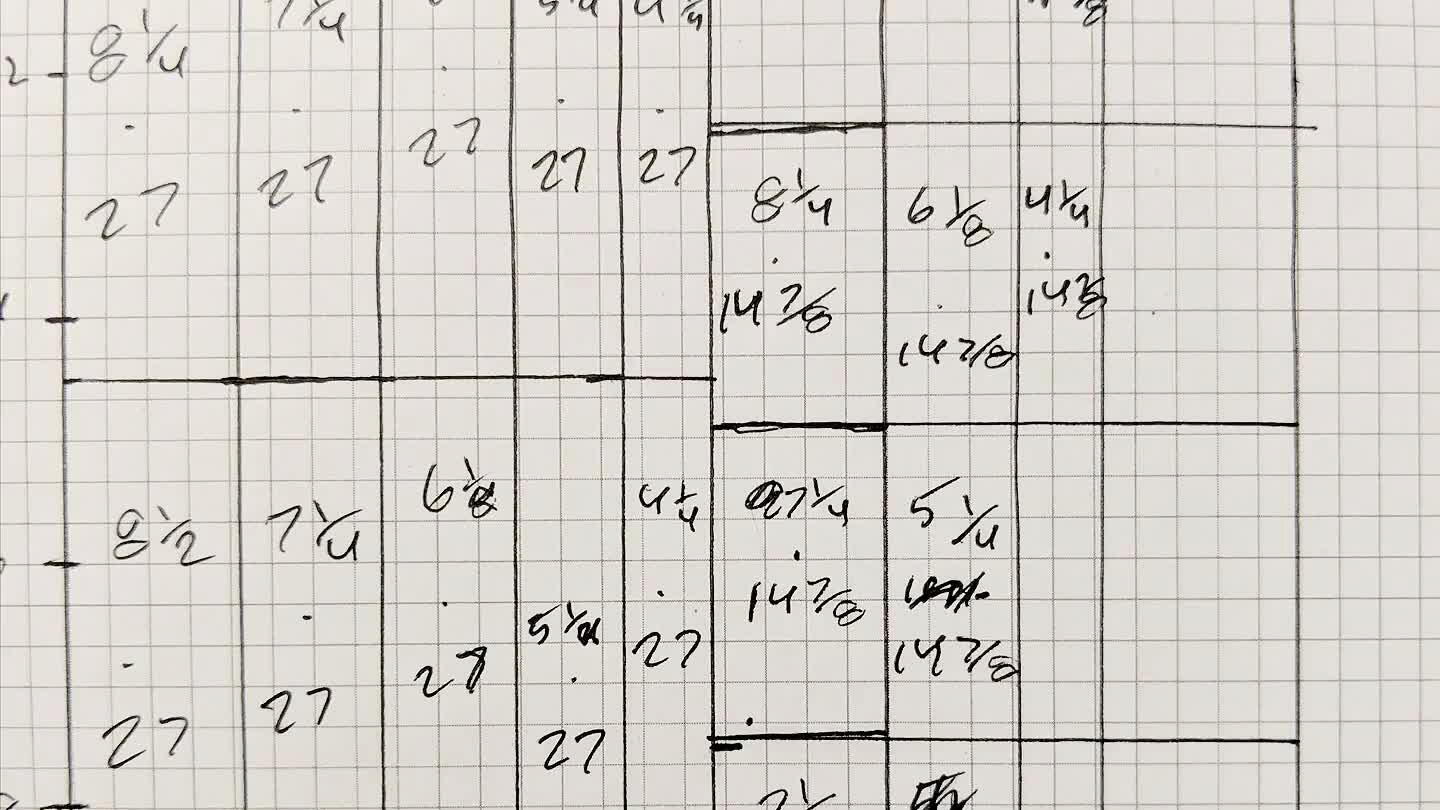 8 1/4
27
7 1/4
27
27
5 1/4
27
4 1/4
27
8 1/4
14 7/8
6 1/8
14 7/8
4 1/4
14 7/8
8 1/2
27
7 1/4
27
6 1/8
27
5 1/4
27
4 1/4
27
7 1/4
14 7/8
5 1/4
14 7/8